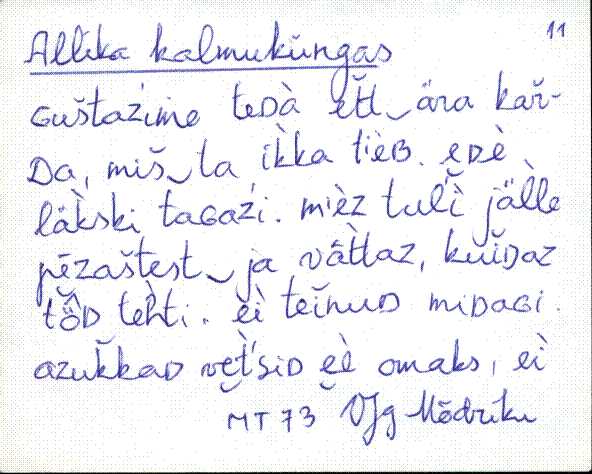 11
Allika kalmuküngas
Guštaźime teDà et̆t‿ära kar̆-
Da, miš‿ta ìkka tièB. eDè
läkski taGaźi. mièz tulì jälle
pēzaštest‿ja vàttaz, kuiDaz
tö̂D tehti. eì teinuD miDaGi.
azuk̆kaD vet̆t'siD eè omaks, eì
MT 73 VJg Mõdriku